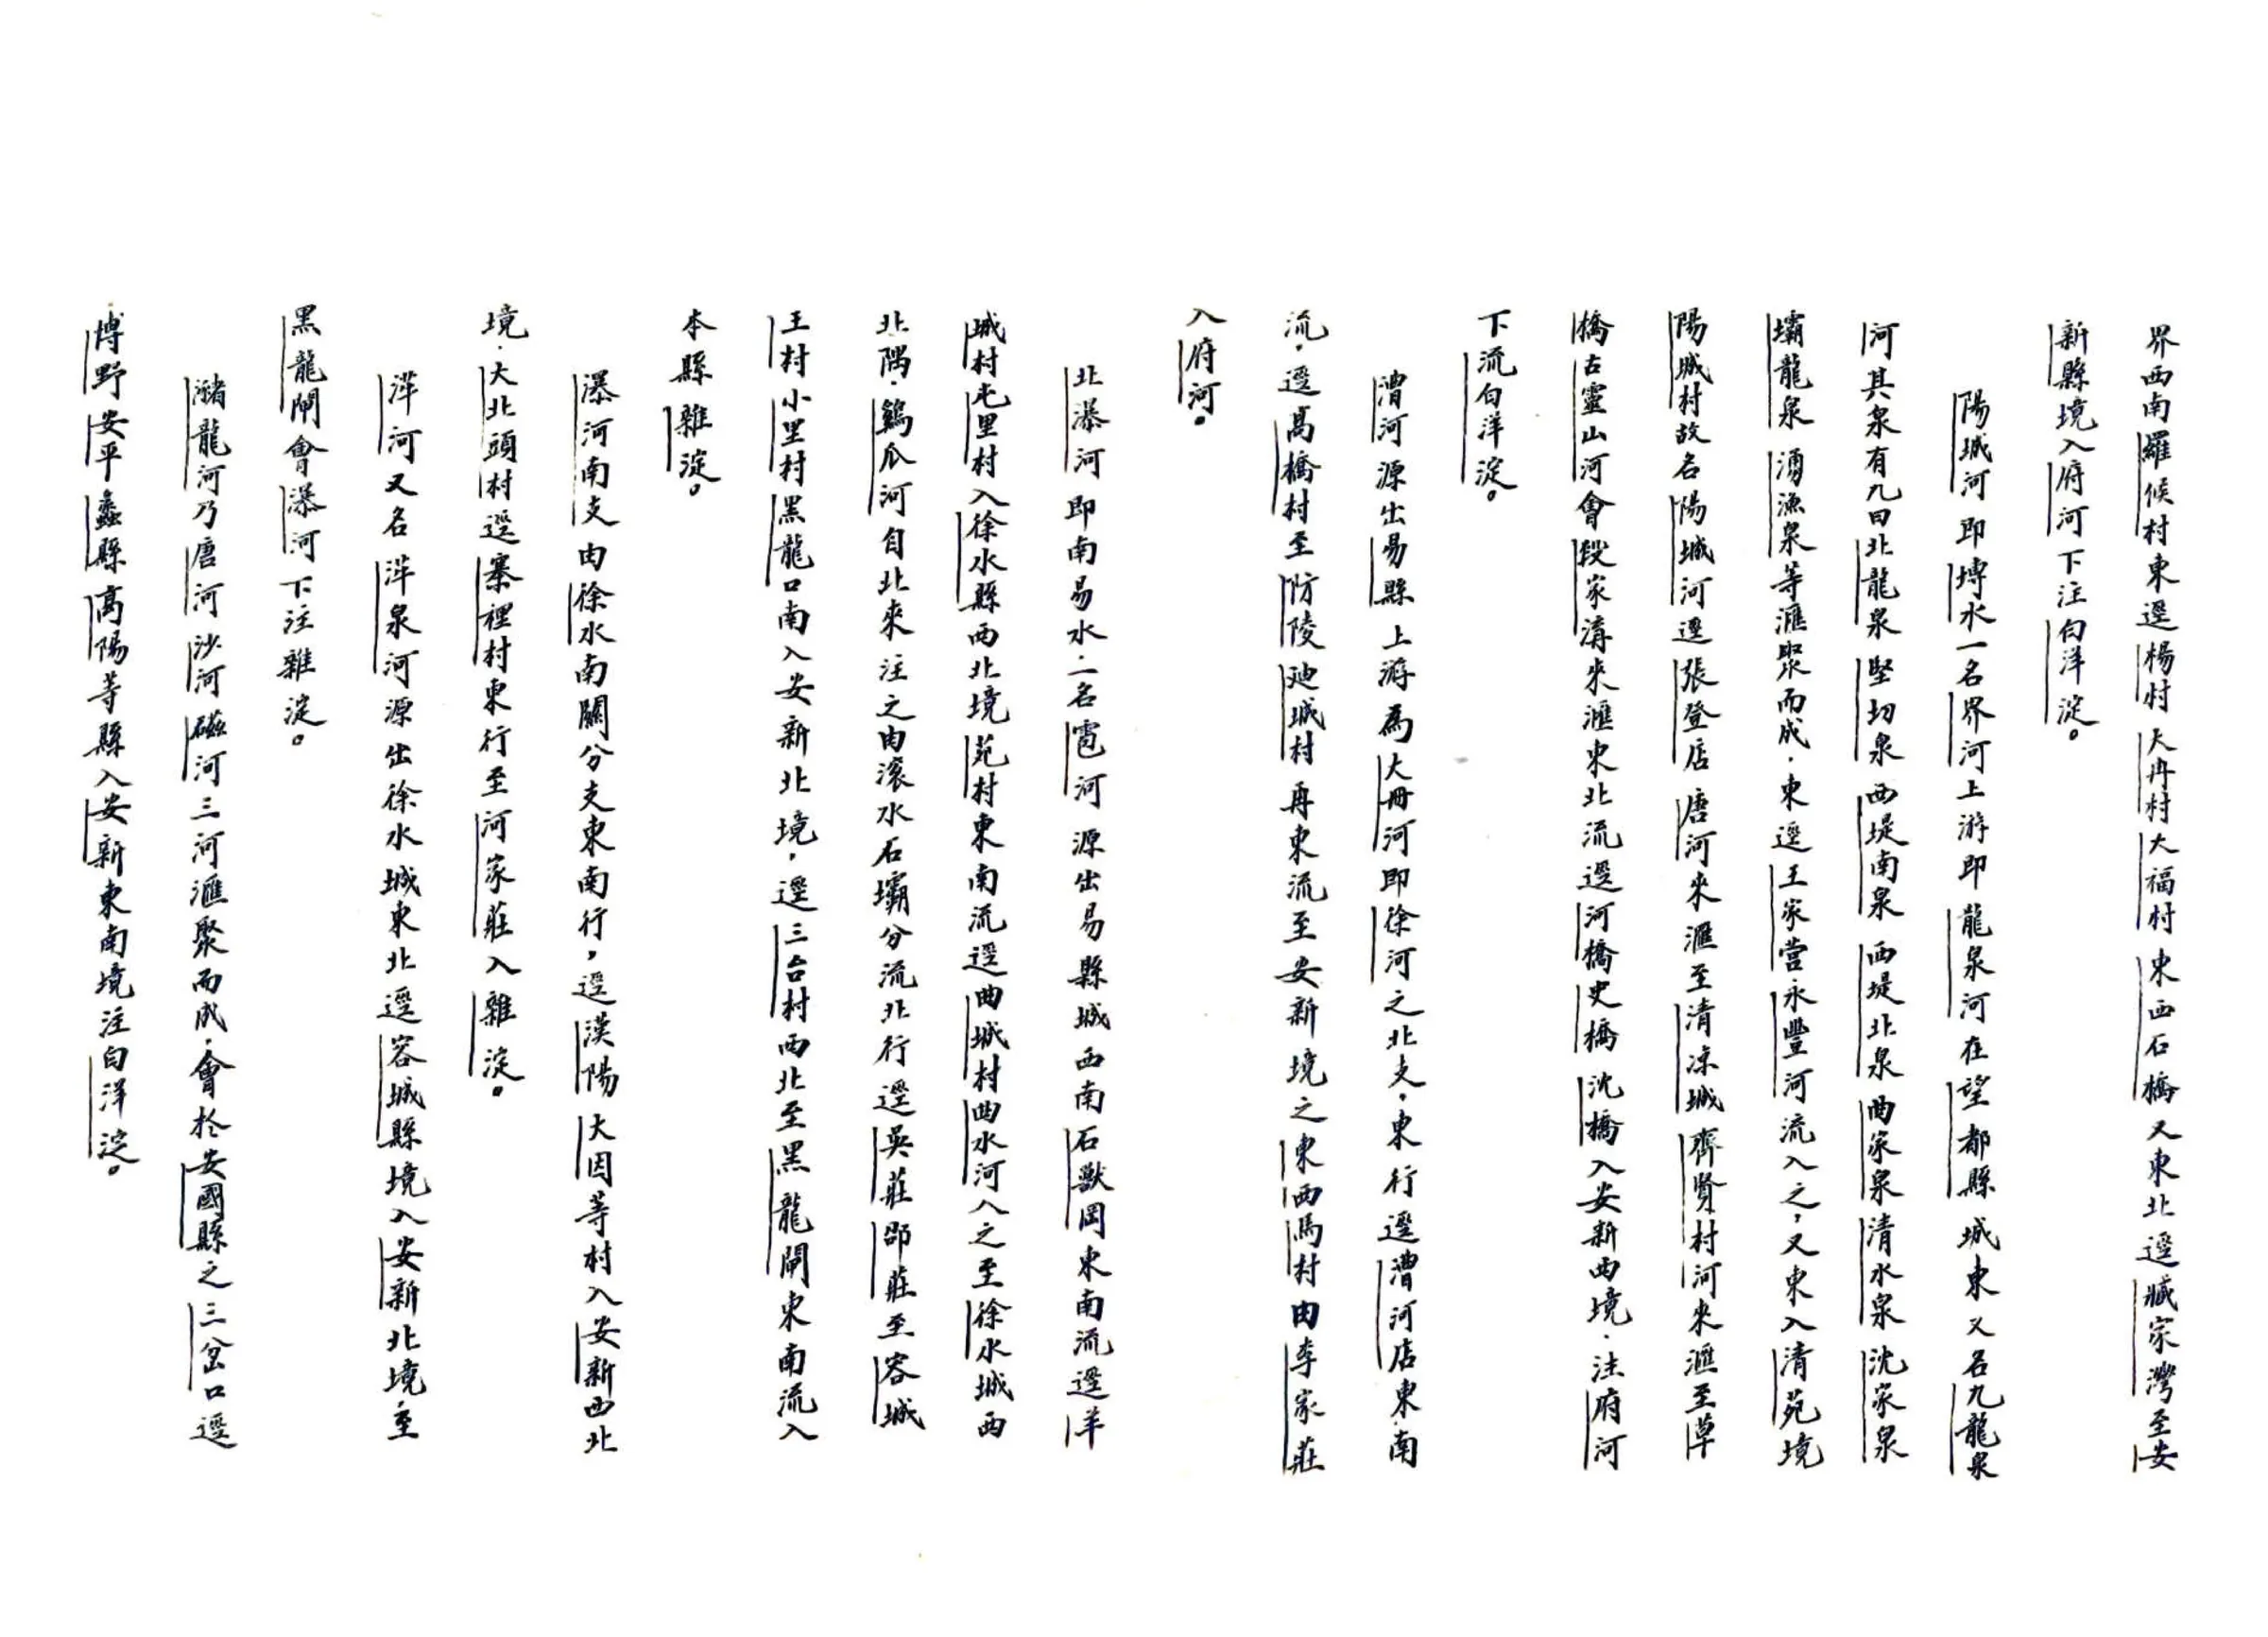 界西南羅候村東逕楊村大冉村大福村東西石橋又東北逕臧家灣至安
新縣境入府河下注白洋淀。
陽城河即博水一名界河上游即龍泉河在望都縣城東又名九龍泉
河其泉有九曰北龍泉堅切泉西堤南泉西堤北泉曲家泉清水泉沈家泉
壩龍泉湧漁泉等滙聚而成.東逕王家营永豐河流入之,又東入清苑境
陽城村故名陽城河逕張登店唐河來滙至清凉城齊賢村河來滙至草
橋古靈山河會段家溝來滙東北流逕河橋史橋沈橋入安新西境.注府河
下流白洋淀。
漕河源出易縣上游為大冊河即徐河之北支,東行逕漕河店東.南
流,逕高橋村至防陵迪城村再東流至安新境之東西馬村由李家莊
入府河。
北瀑河即南易水.一名雹河源出易縣城西南石獸岡東南流逕羊
城村屯里村入徐水縣西北境苑村東南流逕曲城村曲水河入之至徐水城西
北隅.鷄爪河自北來注之由滚水石壩分流北行逕吳莊邵莊至容城
王村小里村黑龍口南入安新北境,逕三台村西北至黑龍閘東南流入
本縣雜淀。
瀑河南支由徐水南關分支東南行,逕漢陽大因等村入安新西北
境.大北頭村逕寨裡村東行至河家莊入雜淀。
萍河又名萍泉河源出徐水城東北逕容城縣境入安新北境.至
黑龍閘會瀑河下注雜淀。
瀦龍河乃唐河沙河磁河三河滙聚而成,會於安國縣之三岔口逕
博野安平蠡縣高陽等縣入安新東南境注白洋淀。